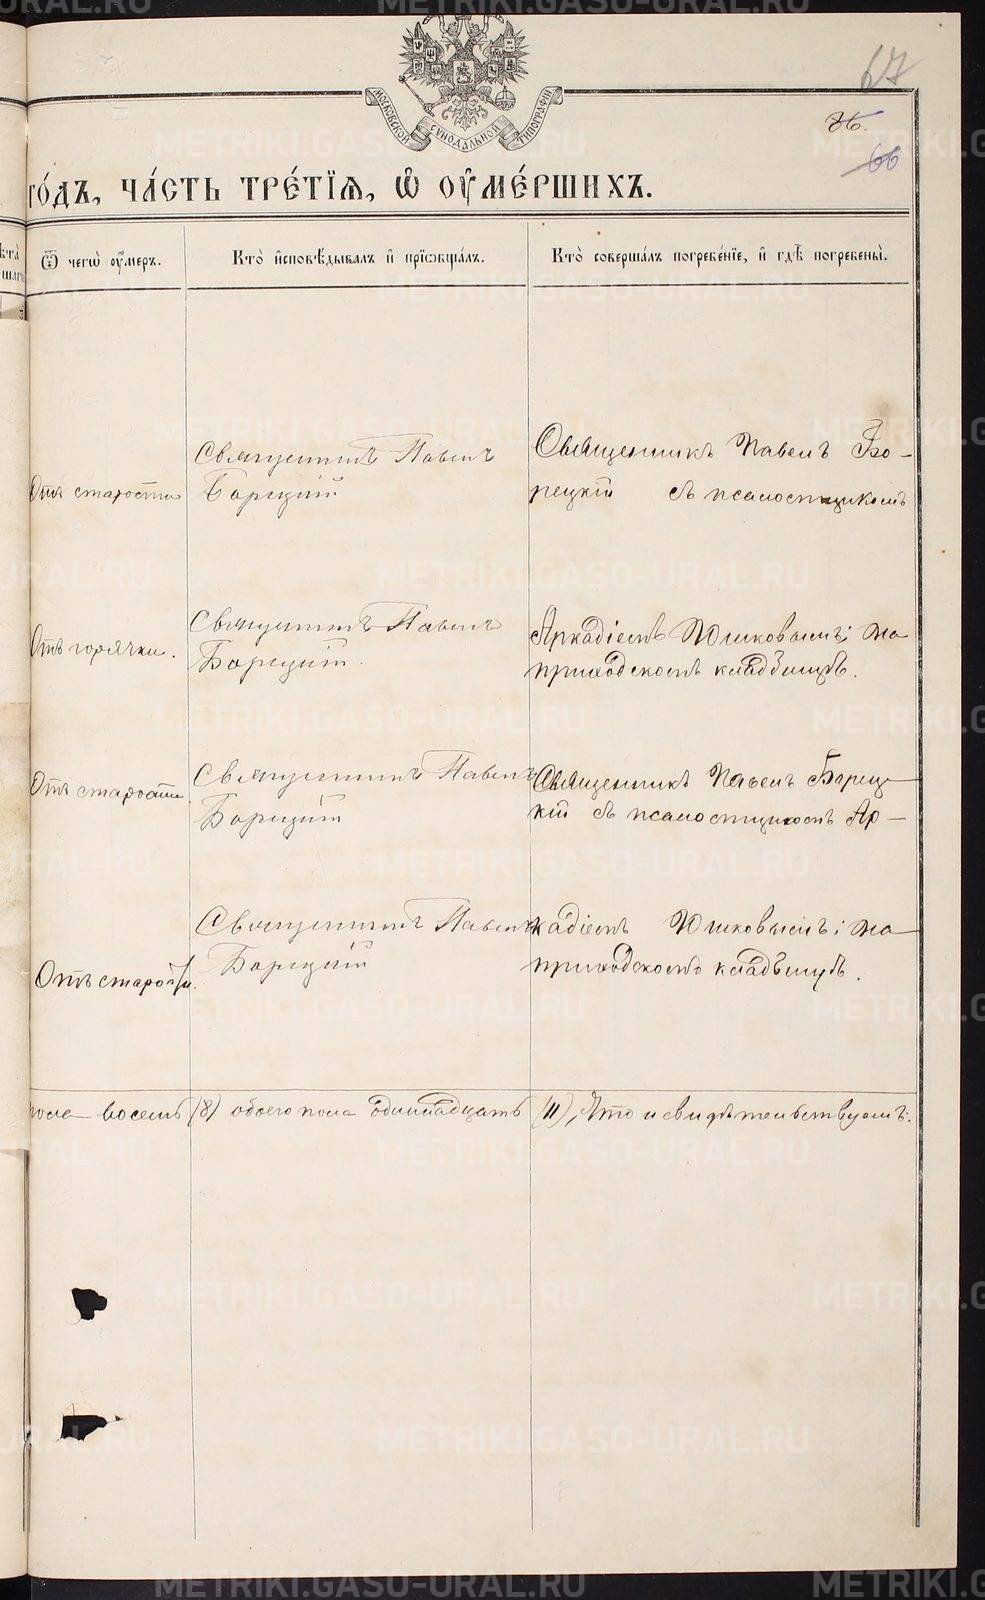 67
66
МОСКОВСКОЙ СѴНОДАЛЬНОЙ ТИПОГРАФІИ
го́дъ, ча́сть тре́тїѧ, ѽ оу҆ме́ршихъ.
Ѿ чегѡ̀ оу҆́меръ.
Кто̀ и҆сповѣ́дывалъ и҆ прїѡбща́лъ.
Кто̀ соверша́лъ погребе́нїе, и҆ гдѣ̀ погребены̀.
Отъ старости
Священникъ Павелъ
Борецкій
Священникъ Павелъ Бо-
рецкій съ псаломщикомъ
Отъ горячки.
Священникъ Павелъ
Борецкій.
Аркадіемъ Юшковымъ; на
приходскомъ кладбищѣ.
Отъ старости.
Священникъ Павелъ
Борецкій
Священникъ Павелъ Борец-
кій съ псаломщикомъ Ар-
Отъ старости.
Священникъ Павелъ
Борецкій
кадіемъ Юшковымъ; на
приходскомъ кладбищѣ.
пола восемь (8) обоего пола одиннадцать (11), Что и свидѣтельствуемъ:
METRIKI.GASO-URAL.RU